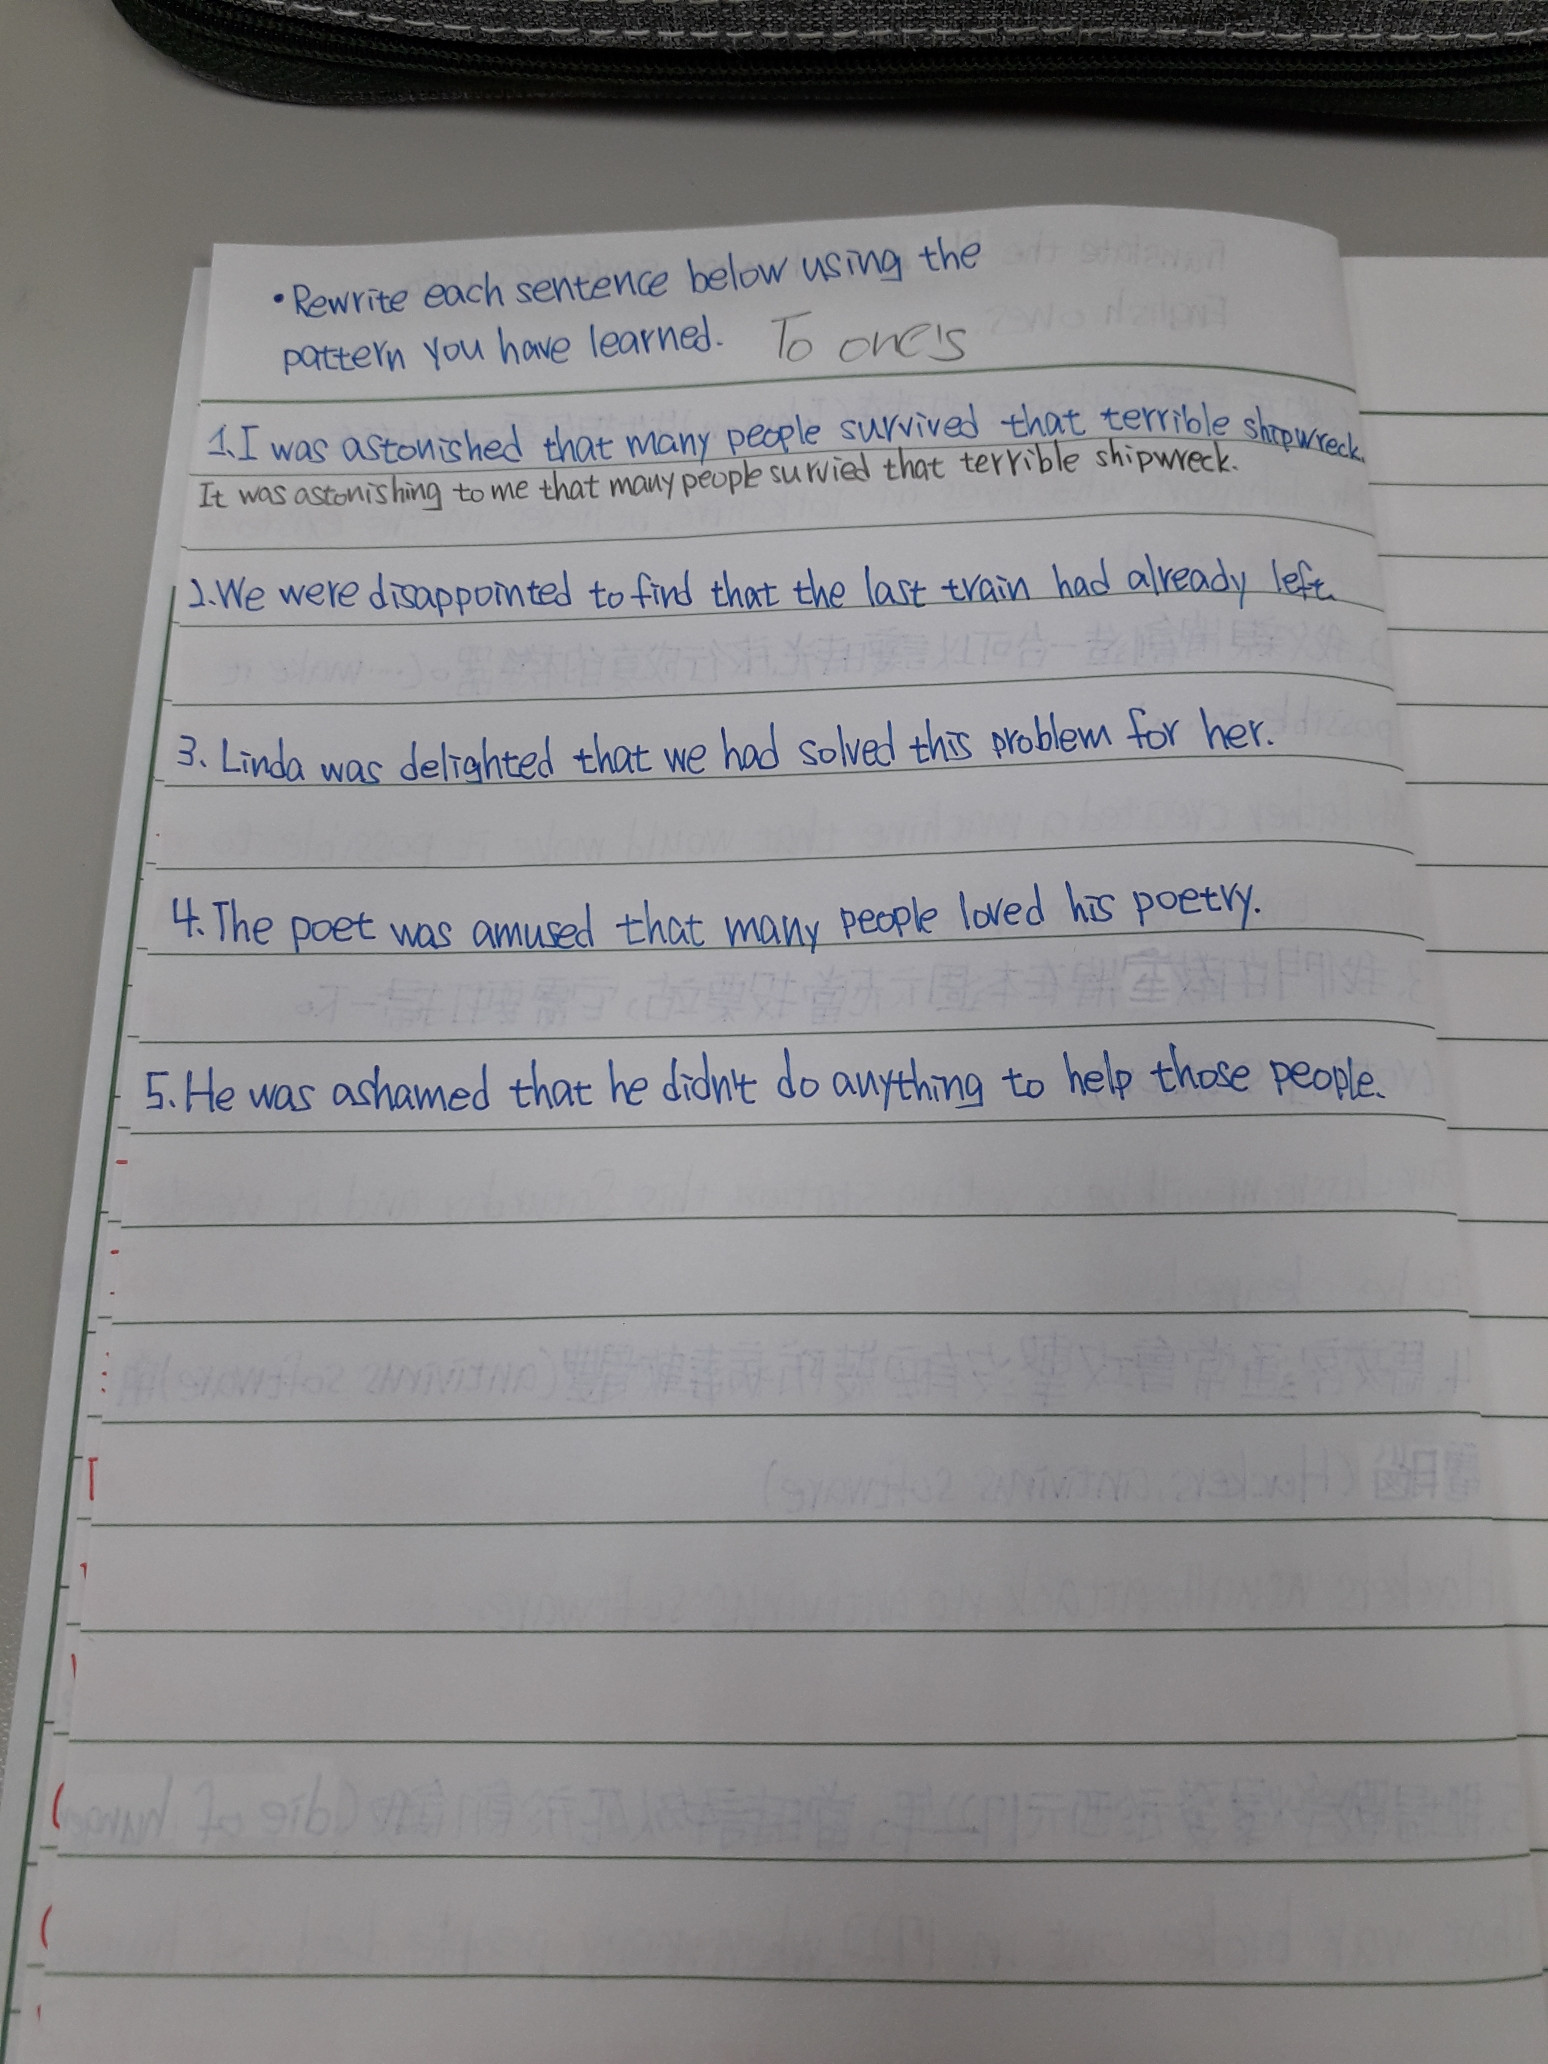 •Rewrite each sentence below using the
pattern you have learned. To one's
1. I was astonished that many people survived that terrible shipwreck.
It was astonishing to me that many people survied that terrible shipwreck.
2. We were disappointed to find that the last train had already left.
3. Linda was delighted that we had solved this problem for her.
4. The poet was amused that many people loved his poetry.
5. He was ashamed that he didn't do anything to help those people.